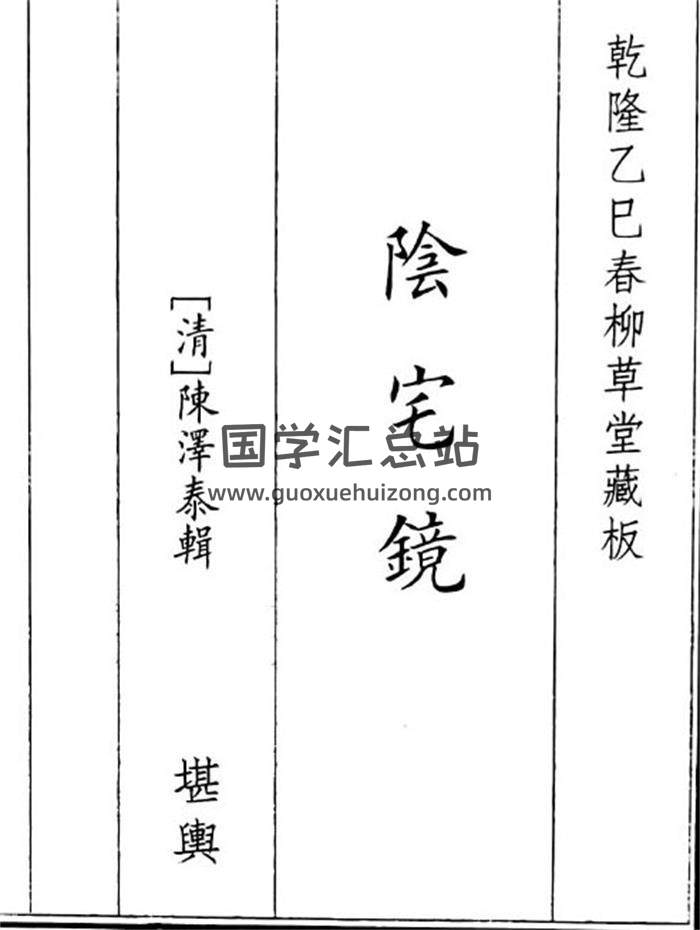 乾隆乙巳春柳草堂藏板
陰宅鏡
[清]陳澤泰輯
堪輿
国学汇总站
www.guoxuehuizong.com